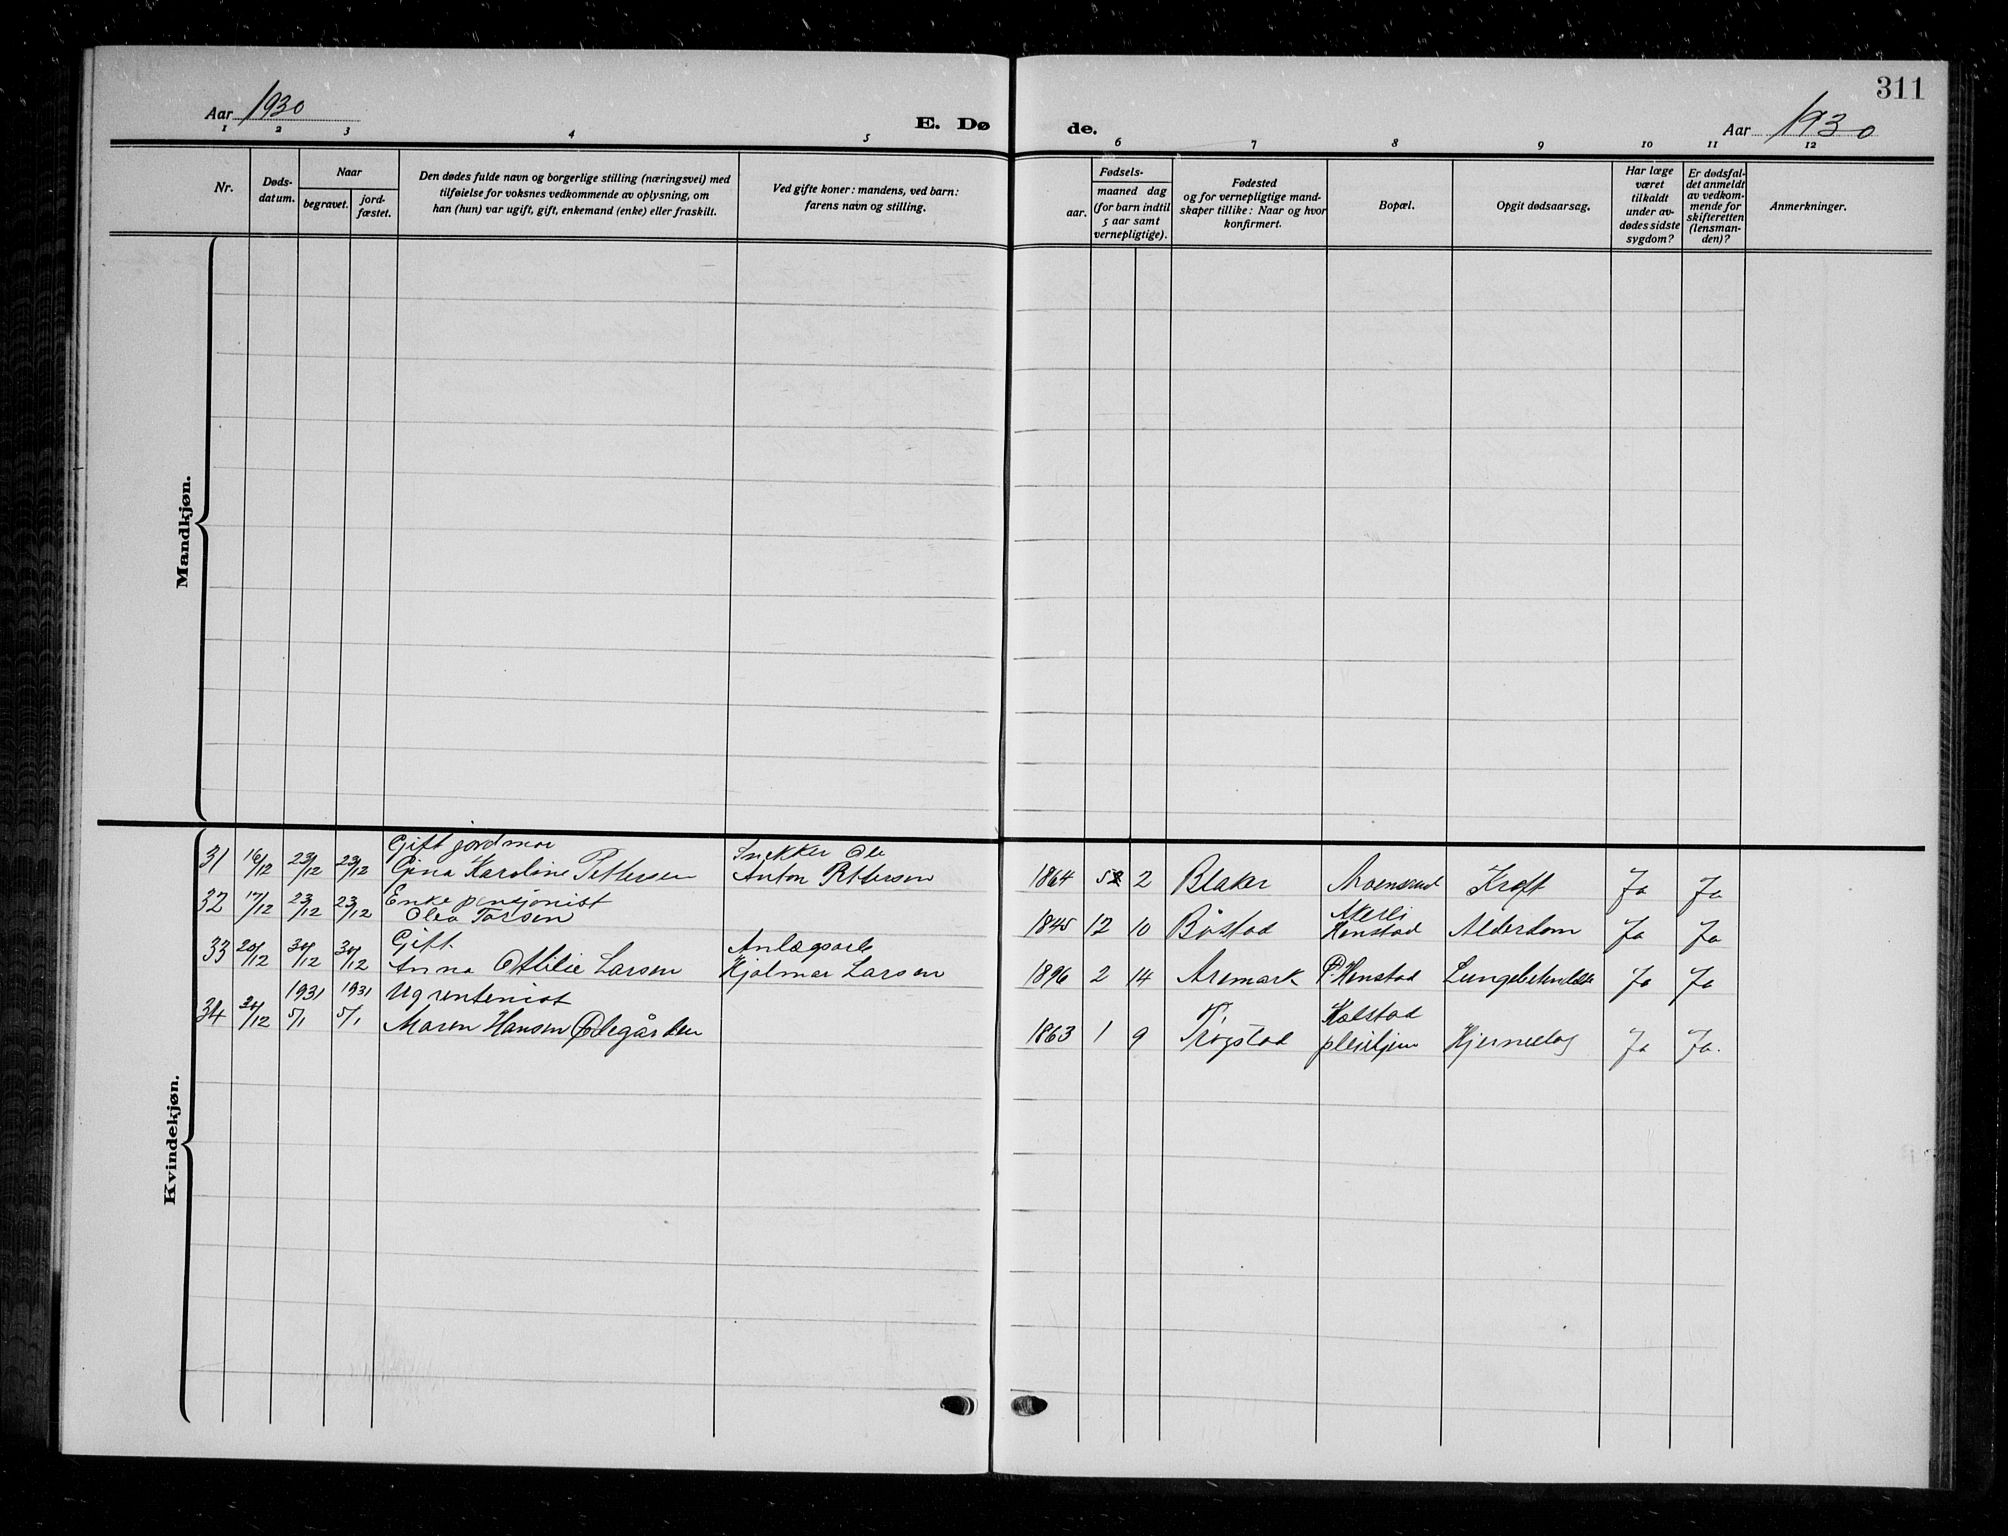 311
Aar 1930
E. Dø de.
Aar 1930
1 2 3 4 5 6 7 8 9 10 11 12
Nr.
Døds-
datum.
Naar
begravet.
jord-
fæstet.
Den dødes fulde navn og borgerlige stilling (næringsvei) med
tilføielse for voksnes vedkommende av oplysning, om
han (hun) var ugift, gift, enkemand (enke) eller fraskilt.
Ved gifte koner: mandens, ved barn:
farens navn og stilling.
Fødsels-
aar.
maaned dag
(for barn indtil
5 aar samt
vernepligtige).
Fødested
og for vernepligtige mand-
skaper tillike: Naar og hvor
konfirmert.
Bopæl.
Opgit dødsaarsag.
Har læge
været
tilkaldt
under av-
dødes sidste
sygdom?
Er dødsfal-
det anmeldt
av vedkom-
mende for
skifteretten
(lensman-
den)?
Anmerkninger.
Mandkjøn.
Kvindekjøn.
Gift jordmor Snekker Ole
31 16/12 23/12 23/12 Gina Karoline Pettersen Anton Pettersen 1864 5 2 Blaker Kreft Ja Ja
Enke pensjonist Akerli
32 17/12 23/12 23/12 Olea Torsen 1845 12 10 Båstad Henstad Alderdom Ja Ja
Gift Anlægsarb
33 20/12 30/12 30/12 Anna Otilie Larsen Hjalmar Larsen 1896 2 14 Aremark P. Henstad Ja Ja
1931 1931 Ug rentenist Kalstad
34 30/12 5/1 5/1 Maren Hansen Ødegården 1863 1 9 Trøgstad pleiehjem Hjerneslag Ja Ja.